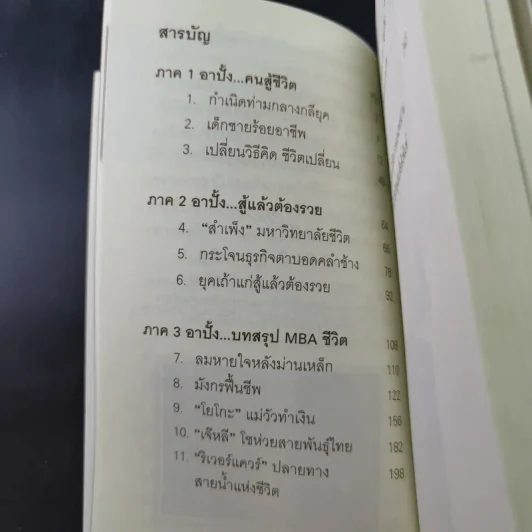 สารบัญ
ภาค 1 อาปั้ง...คนสู้ชีวิต
1. กำเนิดท่ามกลางกลียุค
2. เด็กชายร้อยอาชีพ
3. เปลี่ยนวิธีคิด ชีวิตเปลี่ยน
ภาค 2 อาปั้ง...สู้แล้วต้องรวย
4. “สำเพ็ง” มหาวิทยาลัยชีวิต
5. กระโจนธุรกิจตาบอดคลำช้าง 78
6. ยุคเถ้าแก่สู้แล้วต้องรวย 92
ภาค 3 อาปั้ง...บทสรุป MBA ชีวิต 108
7. ลมหายใจหลังม่านเหล็ก 110
8. มังกรฟื้นชีพ 122
9. “โยโกะ” แม่วัวทำเงิน 156
10. “เจ๊หลี” โชห่วยสายพันธุ์ไทย 182
11. “ริเวอร์แควร์” ปลายทาง 198
สายน้ำแห่งชีวิต